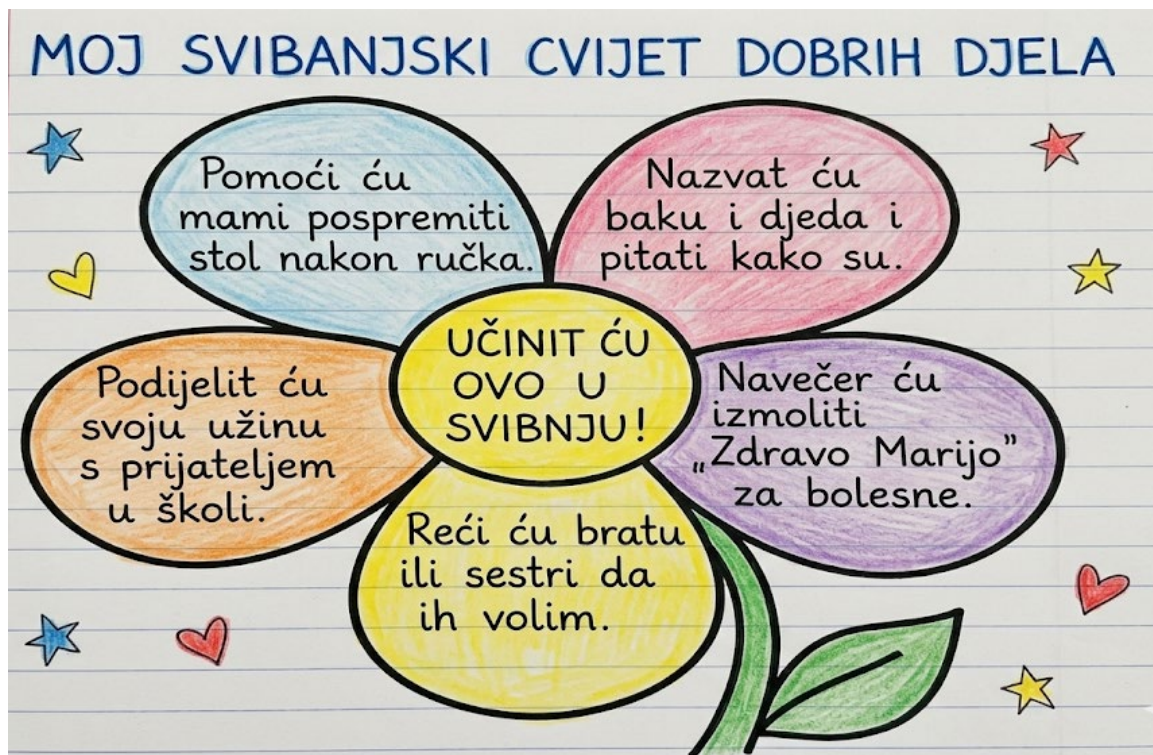 MOJ SVIBANJSKI CVIJET DOBRIH DJELA
Pomoći ću
mami pospremiti
stol nakon ručka.
Nazvat ću
baku i djeda i
pitati kako su.
UČINIT ĆU
OVO U
SVIBNJU!
Podijelit ću
svoju užinu
s prijateljem
u školi.
Navečer ću
izmoliti
„Zdravo Marijo”
za bolesne.
Reći ću bratu
ili sestri da
ih volim.